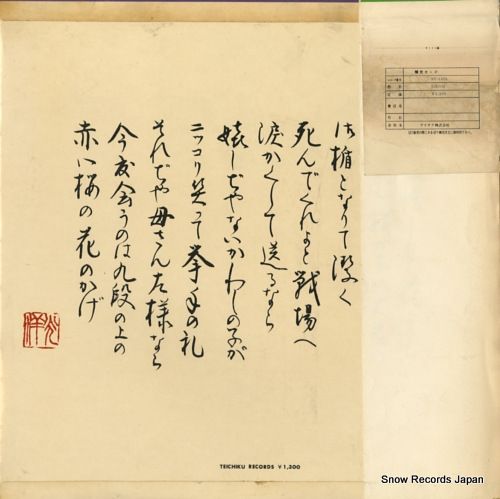 御楯となりて潔く
死んでくれよと戦場へ
涙かくして送るなら
嬉しじやないかわしの子が
ニッコリ笑って挙手の礼
それぢや母さん左様なら
今度会うのは九段の上の
赤い桜の花のかげ
TEICHIKU RECORDS ¥1,200
Snow Records Japan